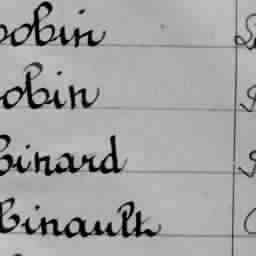 obin
obin
binard
binault